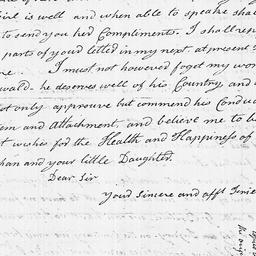 Girl is well and when able to speake sha
to send you her Compliments. I shall rep
parts of your letter in my next. at present
I must not however foget my wor
wald. he deserves well of his Country, and
ot only approuve but commend his Conduc
em and Attachment, and believe me to b
t wishes for the Health and Happiness of
han and your little Daughter.
Dear Sir
your Sincere and afft